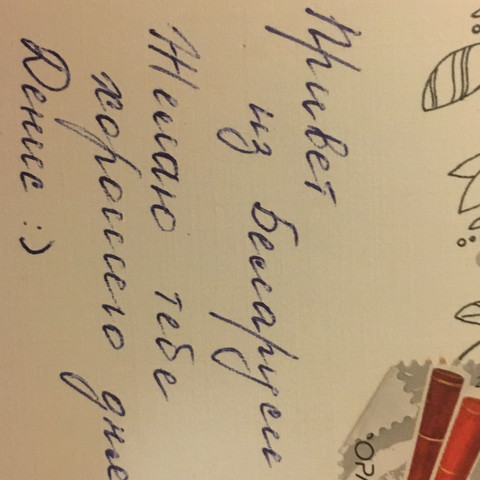 Привет
из Беларуси
Желаю тебе
хорошего дня
Денис :)
ОРА